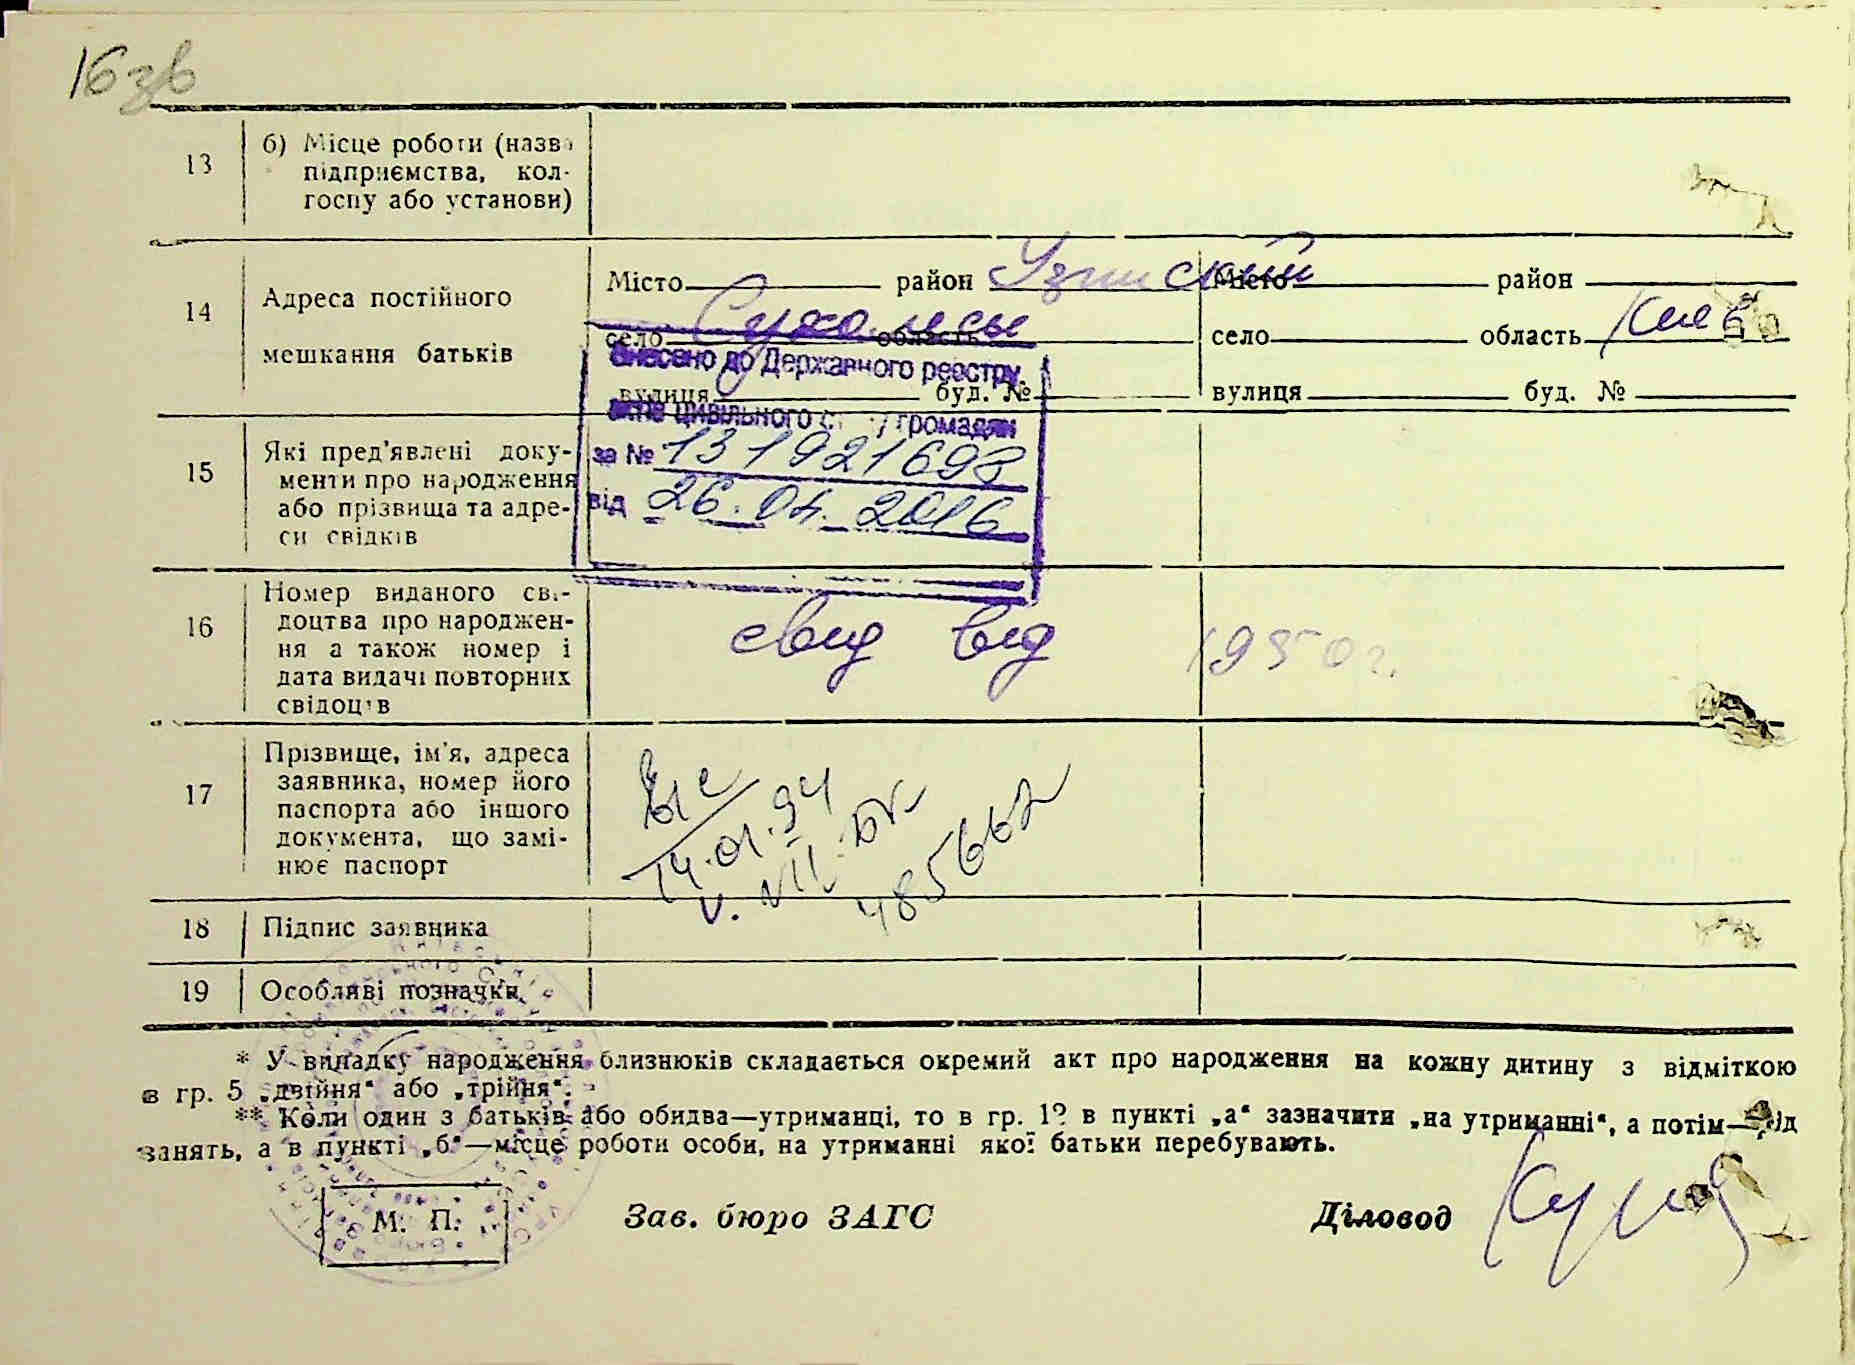 16 зв
13
б) Місце роботи (назва
підприємства, кол-
госпу або установи)
14
Адреса постійного
мешкання батьків
Місто район Узинский
Сухолесы
село область
вулиця буд. №
Місто район
село область Киев
вулиця буд. №
Внесено до Державного реєстру
актів цивільного стану громадян
за № 131921698
від 26.04.2016
15
Які пред'явлені доку-
менти про народження
або прізвища та адре-
си свідків
16
Номер виданого сві-
доцтва про народжен-
ня а також номер і
дата видачі повторних
свідоцтв
свид вид 1950 г.
17
Прізвище, ім'я, адреса
заявника, номер його
паспорта або іншого
документа, що замі-
нює паспорт
14.01.94
485667
18
Підпис заявника
19
Особливі позначки
* У випадку народження близнюків складається окремий акт про народження на кожну дитину з відміткою
в гр. 5 „двійня“ або „трійня“.
** Коли один з батьків або обидва—утриманці, то в гр. 12 в пункті „а“ зазначити „на утриманні“, а потім—рід
занять, а в пункті „б“—місце роботи особи, на утриманні якої батьки перебувають.
М. П.
Зав. бюро ЗАГС
Діловод